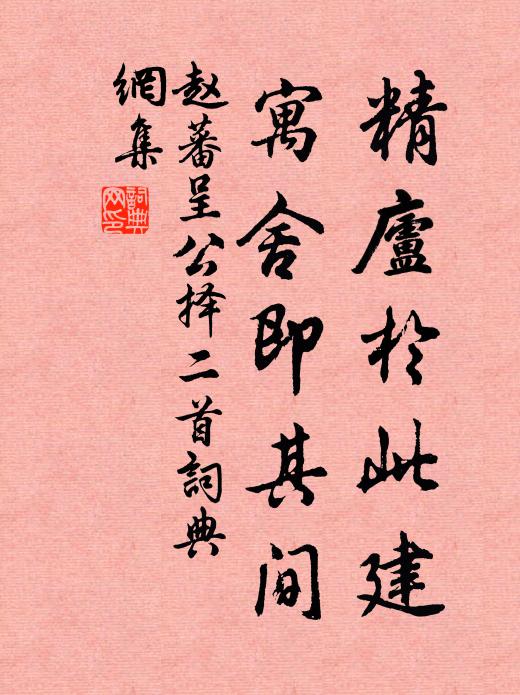 精廬於此建
寓舍即其间
赵蕃呈公择二首詞典
網集
詞典
网印